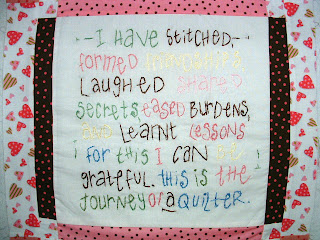 --I HAVE Stitched--
formed friendships
LaUGHeD SHareD
secrets, eased BurDens,
anD Learnt Lessons
for this I CAN be
grateful. this is the
Journey of a QuiLter.